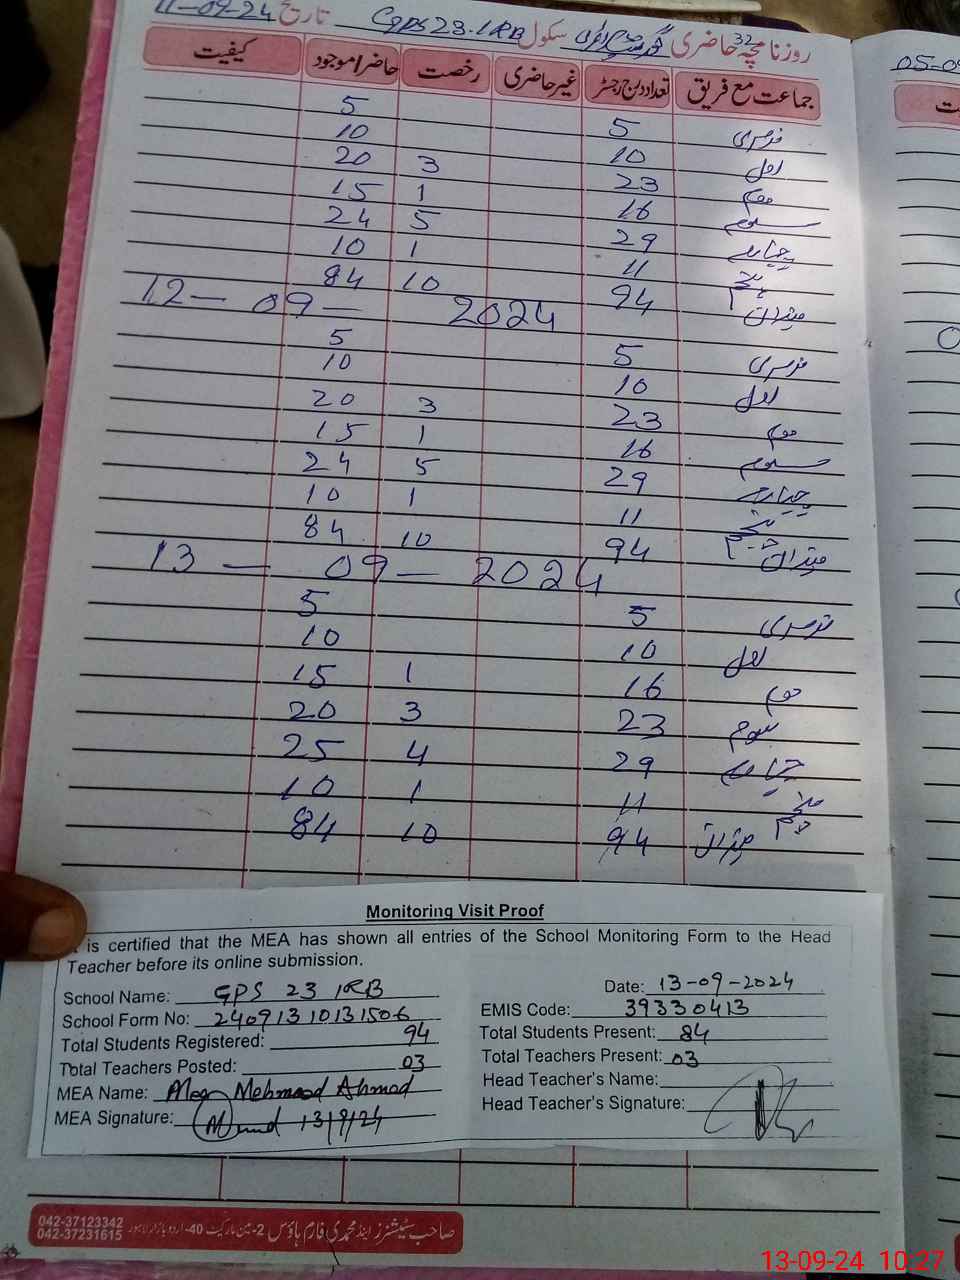 روزنامچہ حاضری 32 گورنمنٹ پرائمری سکول GPS 23.1RB تاریخ 11-09-24
05-0
جماعت مع فریق تعداد درج رجسٹر غیر حاضری رخصت حاضر/موجود کیفیت
نرسری 5 5
اول 10 10
دوم 23 3 20
سوم 16 1 15
چہارم 29 5 24
پنجم 11 1 10
میزان 94 10 84
12 — 09 — 2024
نرسری 5 5
اول 10 10
دوم 23 3 20
سوم 16 1 15
چہارم 29 5 24
پنجم 11 1 10
میزان 94 10 84
13 — 09 — 2024
نرسری 5 5
اول 10 10
دوم 16 1 15
سوم 23 3 20
چہارم 29 4 25
پنجم 11 1 10
میزان 94 10 84
Monitoring Visit Proof
is certified that the MEA has shown all entries of the School Monitoring Form to the Head
Teacher before its online submission.
School Name: GPS 23 1RB Date: 13-09-2024
School Form No: 24091310131506 EMIS Code: 39330413
Total Students Registered: 94 Total Students Present: 84
Total Teachers Posted: 03 Total Teachers Present: 03
MEA Name: Mehmood Ahmad Head Teacher's Name:
MEA Signature: 13/9/24 Head Teacher's Signature:
صاحب سٹیشنرز اینڈ محمدی فارم ہاؤس 2-مین مارکیٹ 40-اردو بازار لاہور 042-37123342
042-37231615
13-09-24 10:27